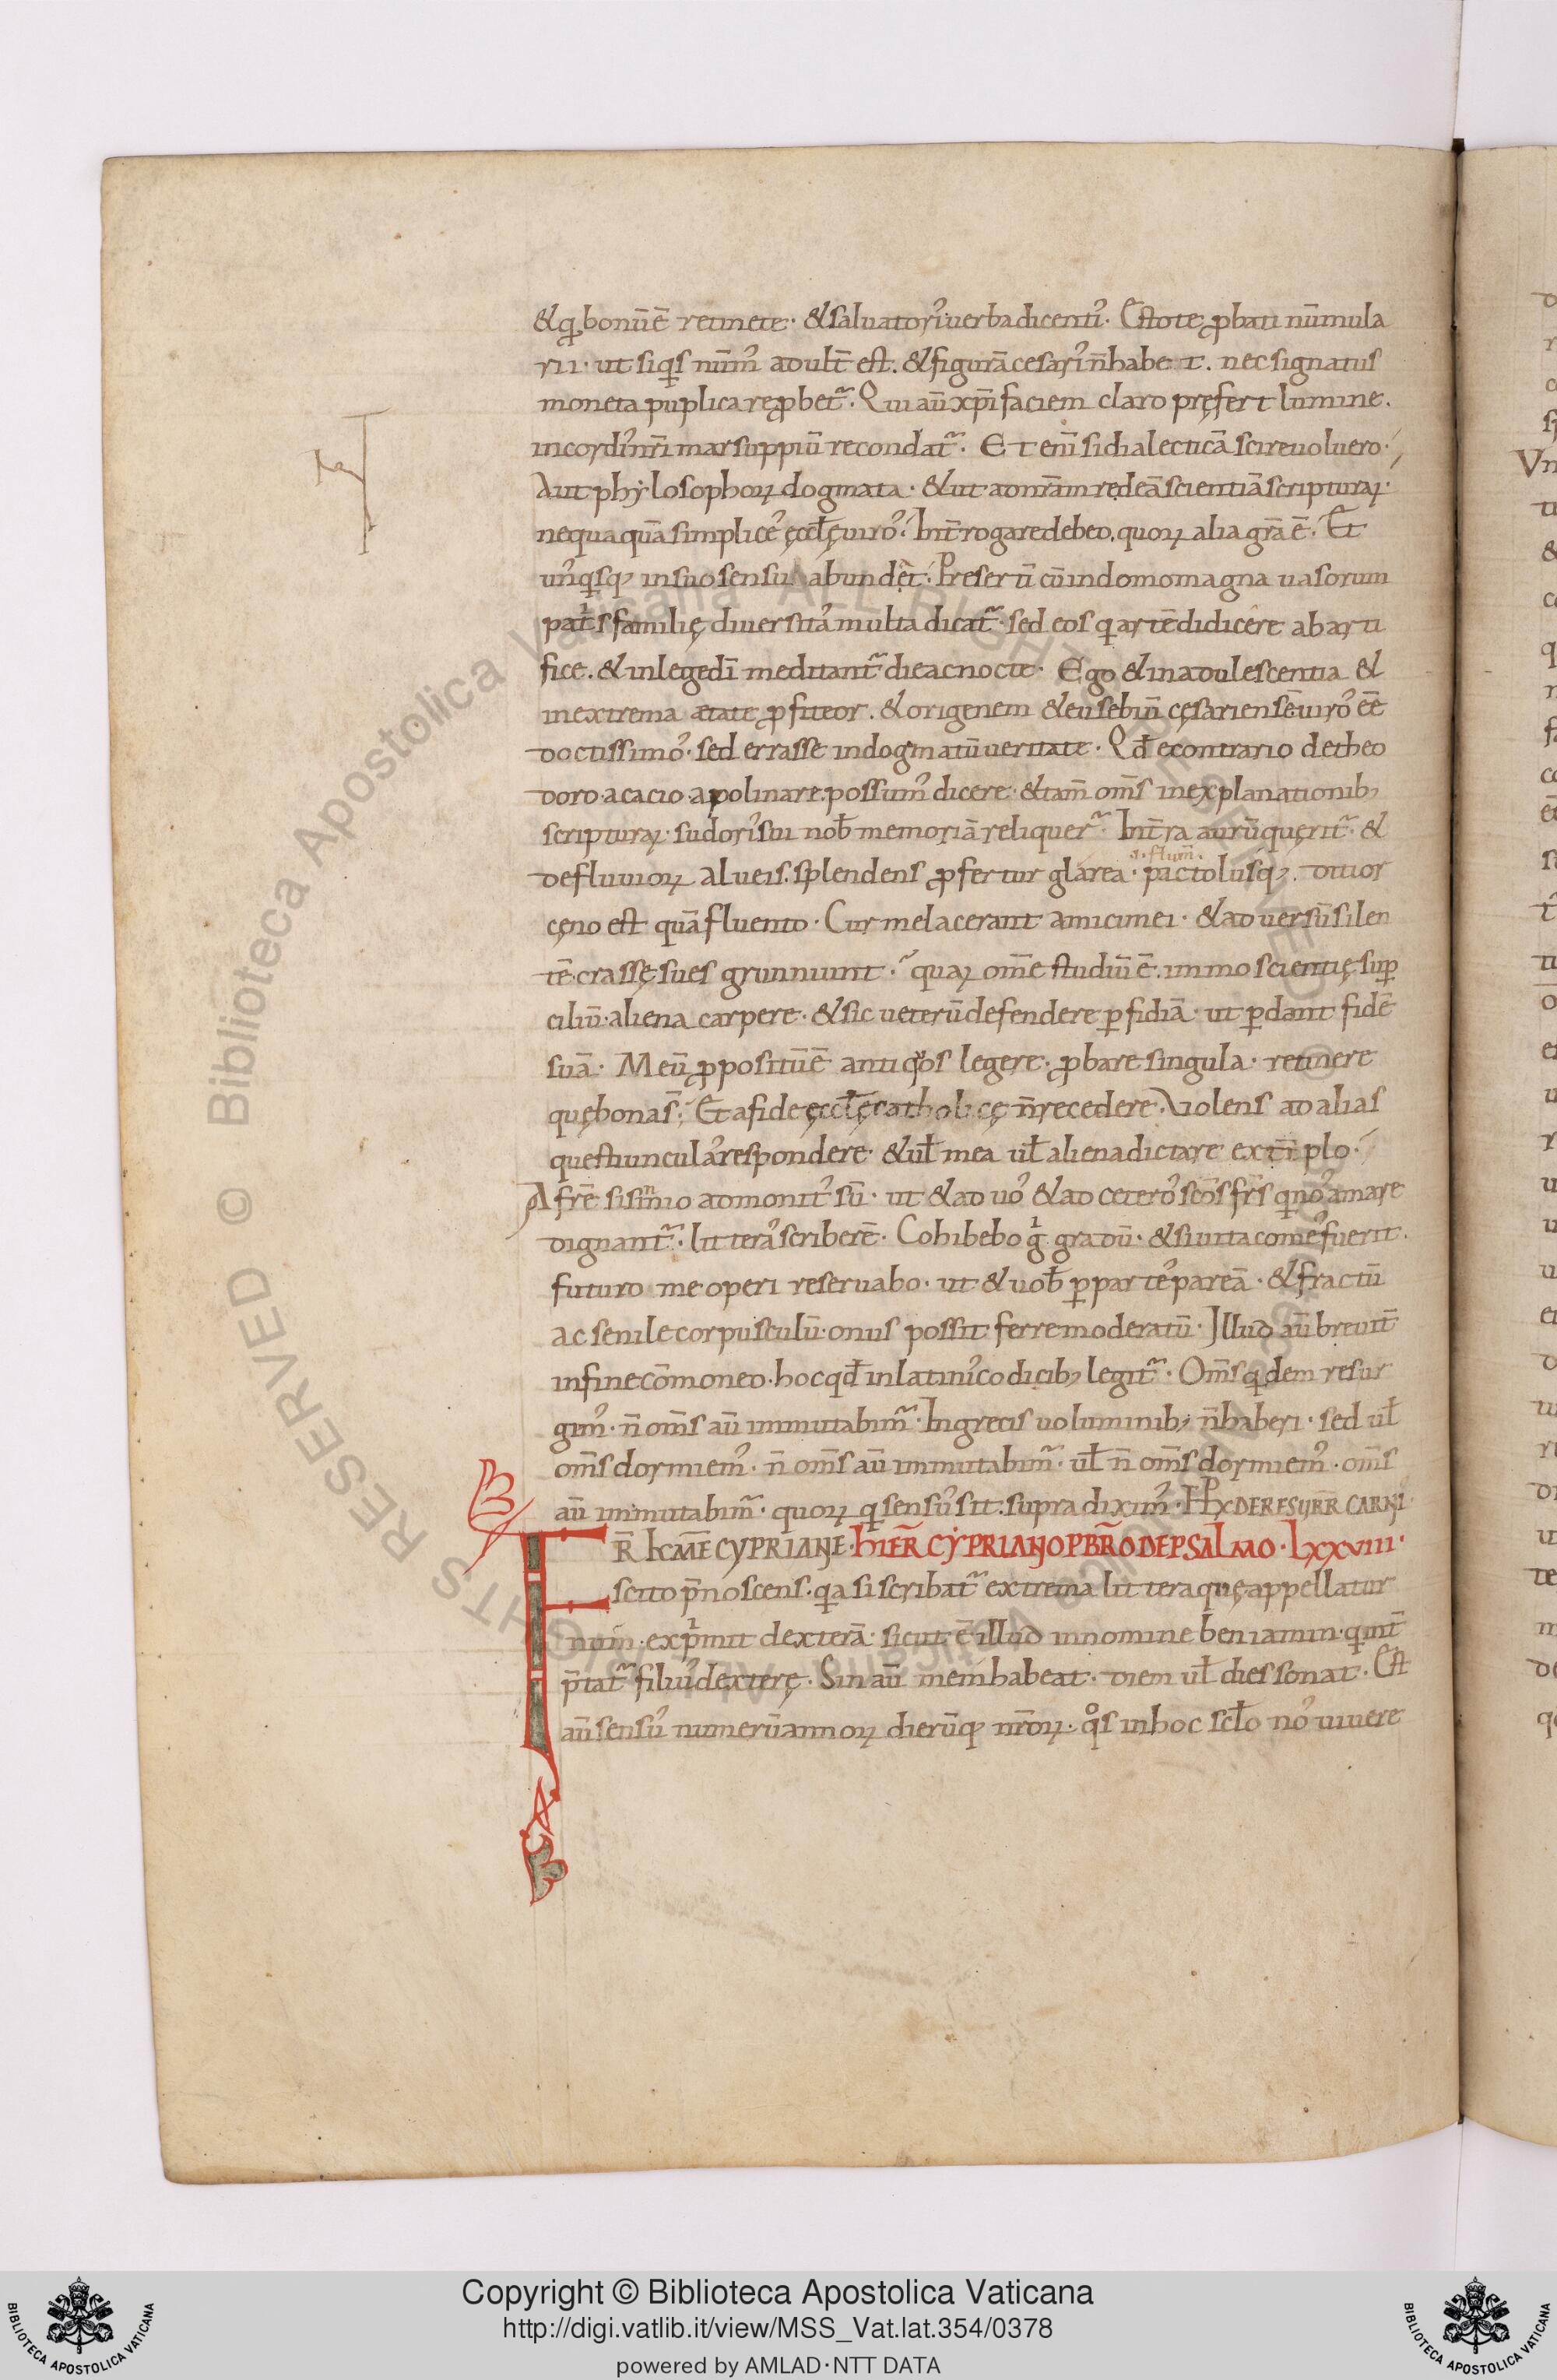 &q̣ bonū ē retinete· &saluatorı᾿ uerba dicentı᾿· Estote ꝓbati nūmula
rii· ut siq̣s nūm᾿ adult̄ est. &figurā cesarı᾿ n̄ habe t. nec signatus
moneta puplica reꝓbet᷉· Qui aū xp̄i faciem claro pręfert lumine.
in cordı᾿ nr̄i marsuppiū recondat᷉· Et eni̅ si dialecticā scire uoluero·
Aut phẏlosophoꝝ dogmata· &ut ad nr̄am redeā scientiā scripturaꝝ·
nequaquā simplice᾿ ęccl̄ę uiro᾿ Int̄rogare debeo. quoꝝ alia gr̄a ē· Et
un᾿q̣sq; in suo sensu abundęt· Presertī cū in domo magna uasorum
patˡs familię diuersita᾿ multa dicat᷉· sed eos q̣ artē didicere ab arti
fice. & in lege dī meditant᷉ die ac nocte· Ego & in adulescentia &
in extrema ætate ꝓfiteor. & origenem & eusebiū cęsariensē uiro᾿ ēē
doctissimo᾿· sed errasse in dogmatū ueritate· Qd̄ econtrario de theo
doro· acacio· apolinare. possum᾿ dicere· & tam̄ om̄s in explanationib;
scripturaꝝ· sudorı᾿ sui nob̄ memoriā reliquer᷉· Int̄ra aurū quęrit᷉· &
de fluuioꝝ alueis. splendens ꝓfertur glarea· pactolusq;. ditior
·i· flum̄·
cęno est quā fluento· Cur me lacerant amici mei· & aduersū silen
tē· crassę sues grunniunt· quaꝝ om̄e studiū ē. immo scientię suꝑ
ciliū· aliena carpere· & sic ueterū defendere ꝑfidiā· ut ꝑdant fidē
suā· Meū ꝓpositū ē antiqͦs legere· ꝓbare singula· retinere
quę bona s̄; Et a fide ęccl̄ę catholicę n̄ recedere· Volens ad alias
questiuncula᾿ respondere· & ul̄ mea ul̄ aliena dictare extı̄plo·
A fr̄e sisinnio admonit᾿ sū· ut & ad uo᾿ & ad cetero᾿ sc̄os fr̄s q̣ no᾿ amare
dignant᷉· littera᾿ scriberē· Cohibebo gͥ gradū· & si uita come᾿ fuerit.
futuro me operi reseruabo· ut & uob̄ ꝑ parte᾿ pareā· & fractū
ac senile corpusculū· onus possit ferre moderatū· Illud aū breuit̄
in fine cōmoneo· hoc qd̄ in latinı᾿ codicib; legit᷉· Om̄s q̣dem resur
gim᾿· n̄ om̄s aū immutabim᷉· In grecis uoluminib; n̄ haberi· sed ul̄
om̄s dormiem᾿· n̄ om̄s aū immutabim᷉· ul̄ n̄ om̄s dormiem᾿· om̄s
aū immutabim᷉· quoꝝ q̣ sensu᾿ sit. supra dixim᾿· EXP DE RESURR̄ CARNI
R̄ K̄C̄M̄E CYPRIANE· HIER̄ CẎPRIANO PB̄RO DE PSALMO· LXXVIIII·
scito p̄noscens· q̣a si scribat᷉ extrema littera quę appellatur
nun· expˡmit dexterā· sicut ē illud in nomine beniamin· q̣ int̄
p̄tat᷉ filiu᾿ dexterę· Sin aū mem habeat· diem ul̄ dies sonat· Est
aū sensu᾿ numerū annoꝝ dierūq; nr̄oꝝ· qͦs in hoc scl̄o no᾿ uiuere
Biblioteca Apostolica Vaticana ALL RIGHTS RESERVED ©
Copyright © Biblioteca Apostolica Vaticana
http://digi.vatlib.it/view/MSS_Vat.lat.354/0378
powered by AMLAD·NTT DATA
BIBLIOTECA APOSTOLICA VATICANA
BIBLIOTECA APOSTOLICA VATICANA